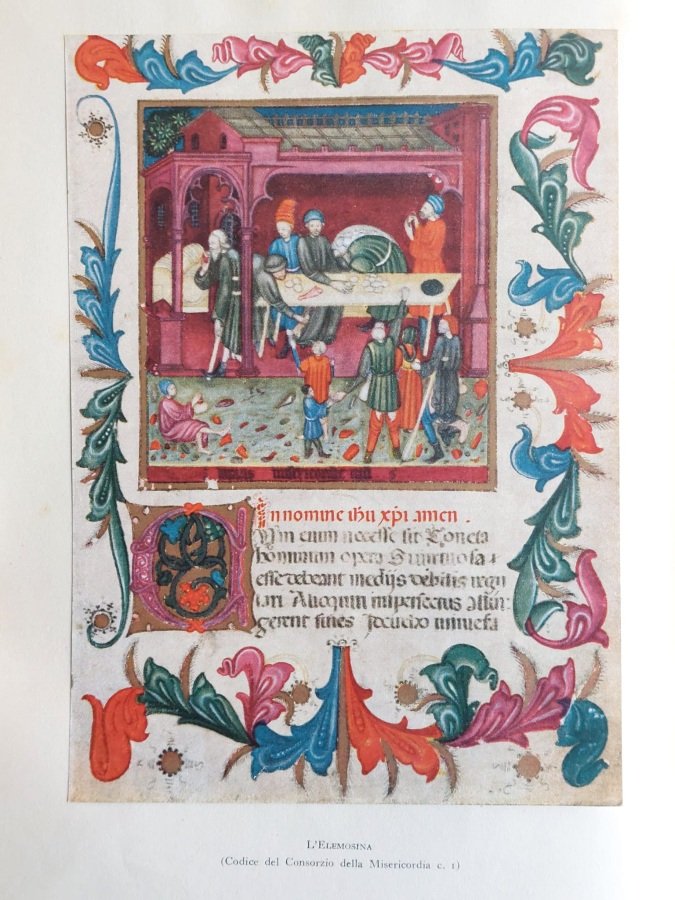 In nomine ihu xpi amen.
CUm enim necesse sit Concta
hominum opera Si virtuosa
esse debeant medijs debitis regu
lari. Alioquin imperfectus Attin-
gerent fines universa
L'ELEMOSINA
(Codice del Consorzio della Misericordia c. 1)